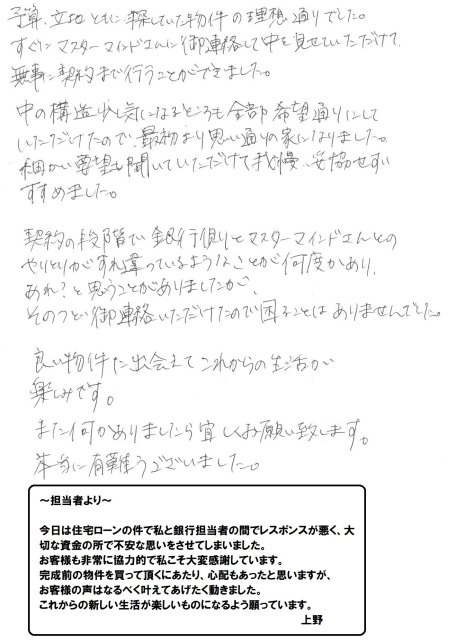 予算、立地ともに探していた物件の理想通りでした。
すぐにマスターマインドさんに御連絡して中を見せていただけて、
無事に契約まで行うことができました。
中の構造少し気になるところも全部希望通りにして
いただけたので、最初より思い通りの家になりました。
細かい要望も聞いていただけて我慢、妥協せずに
すすめました。
契約の段階で銀行側とマスターマインドさんとの
やりとりがすれ違っているようなことが何度かあり、
あれ?と思うことがありましたが、
そのつど御連絡いただけたので困ることはありませんでした。
良い物件に出会えてこれからの生活が
楽しみです。
また何かありましたら宜しくお願い致します。
本当に有難うございました。
～担当者より～
今日は住宅ローンの件で私と銀行担当者の間でレスポンスが悪く、大
切な資金の所で不安な思いをさせてしまいました。
お客様も非常に協力的で私こそ大変感謝しています。
完成前の物件を買って頂くにあたり、心配もあったと思いますが、
お客様の声はなるべく叶えてあげたく動きました。
これからの新しい生活が楽しいものになるよう願っています。
上野